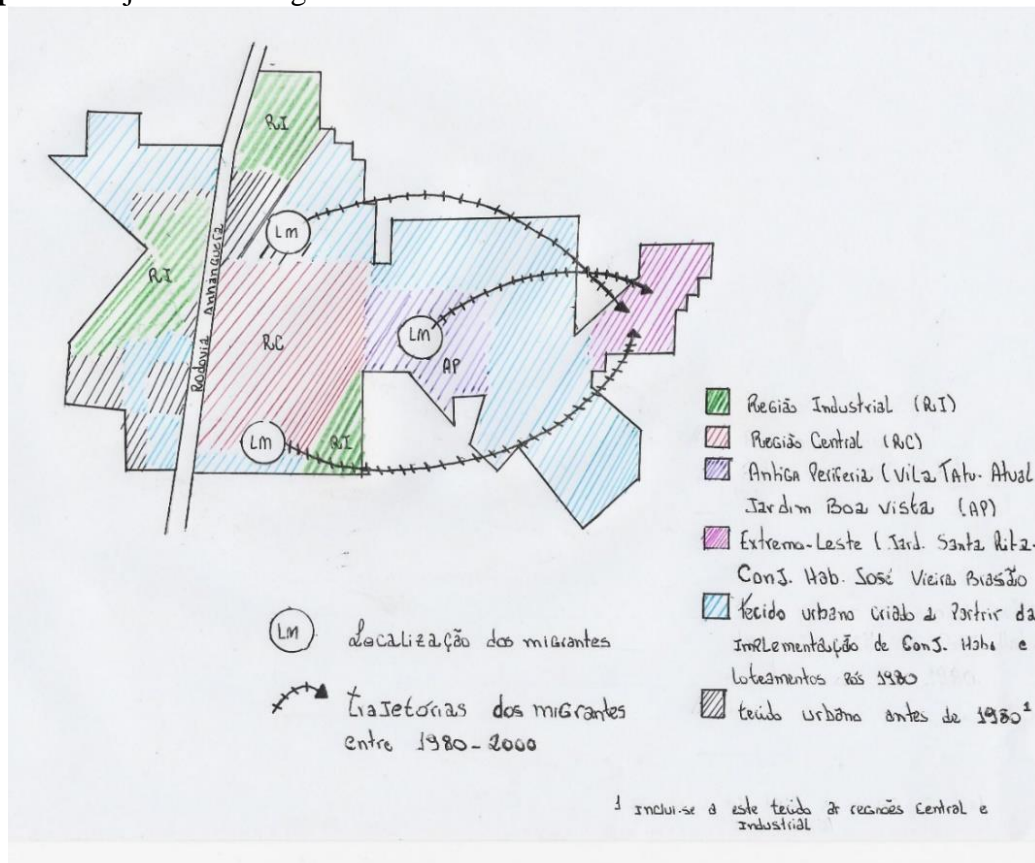 RI
Lm
Rodovia Anhanguera
RI
RC
Lm
AP
Lm
RI
Região Industrial (RI)
Região Central (RC)
Antiga Periferia (Vila Tatu. Atual
Jardim Boa Vista (AP)
Extremo-Leste (Jard. Santa Rita-
Conj. Hab. José Vieira Brasão
tecido urbano criado a Partrir da
Implementação de Conj. Habs e
loteamentos Pós 1980
tecido urbano antes de 1980¹
Lm
Localização dos migrantes
trajetórias dos migrantes
entre 1980-2000
¹ Inclui-se a este tecido as regiões Central e
Industrial